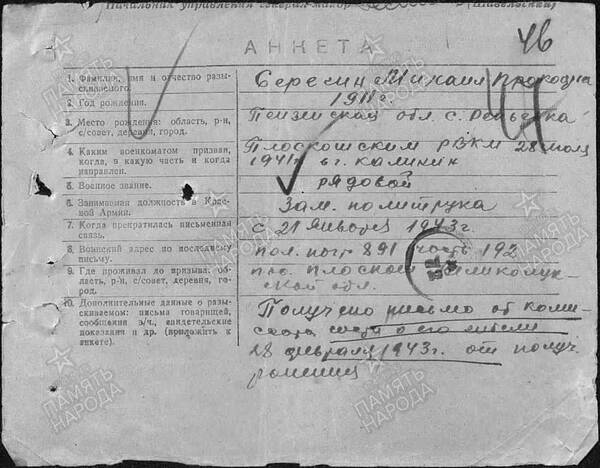 Начальник управления генерал-майор (Шавельский)
АНКЕТА
46
1. Фамилия, имя и отчество разыскиваемого.
Сересин Михаил Прокоп
2. Год рождения.
1911 г.
3. Место рождения: область, р-н, с/совет, деревня, город.
Пензенская обл. с.
4. Каким военкоматом призван, когда, в какую часть и когда направлен.
Плоскошским РВКМ 28 июля
1941г. в г. Калинин
5. Военное звание.
рядовой
6. Занимаемая должность в Красной Армии.
Зам. политрука
7. Когда прекратилась письменная связь.
с 21 января 1943г.
8. Воинский адрес по последнему письму.
пол. почт 891 часть 192
9. Где проживал до призыва: область, р-н, с/совет, деревня, город.
Великолук-
ской обл.
10. Дополнительные данные о разыскиваемом: письма товарищей, сообщения в/ч, свидетельские показания и др. (приложить к анкете).
Получено письмо от коми-
о его гибели
28 февраля 1943г. от получ.
ранения
ПАМЯТЬ НАРОДА